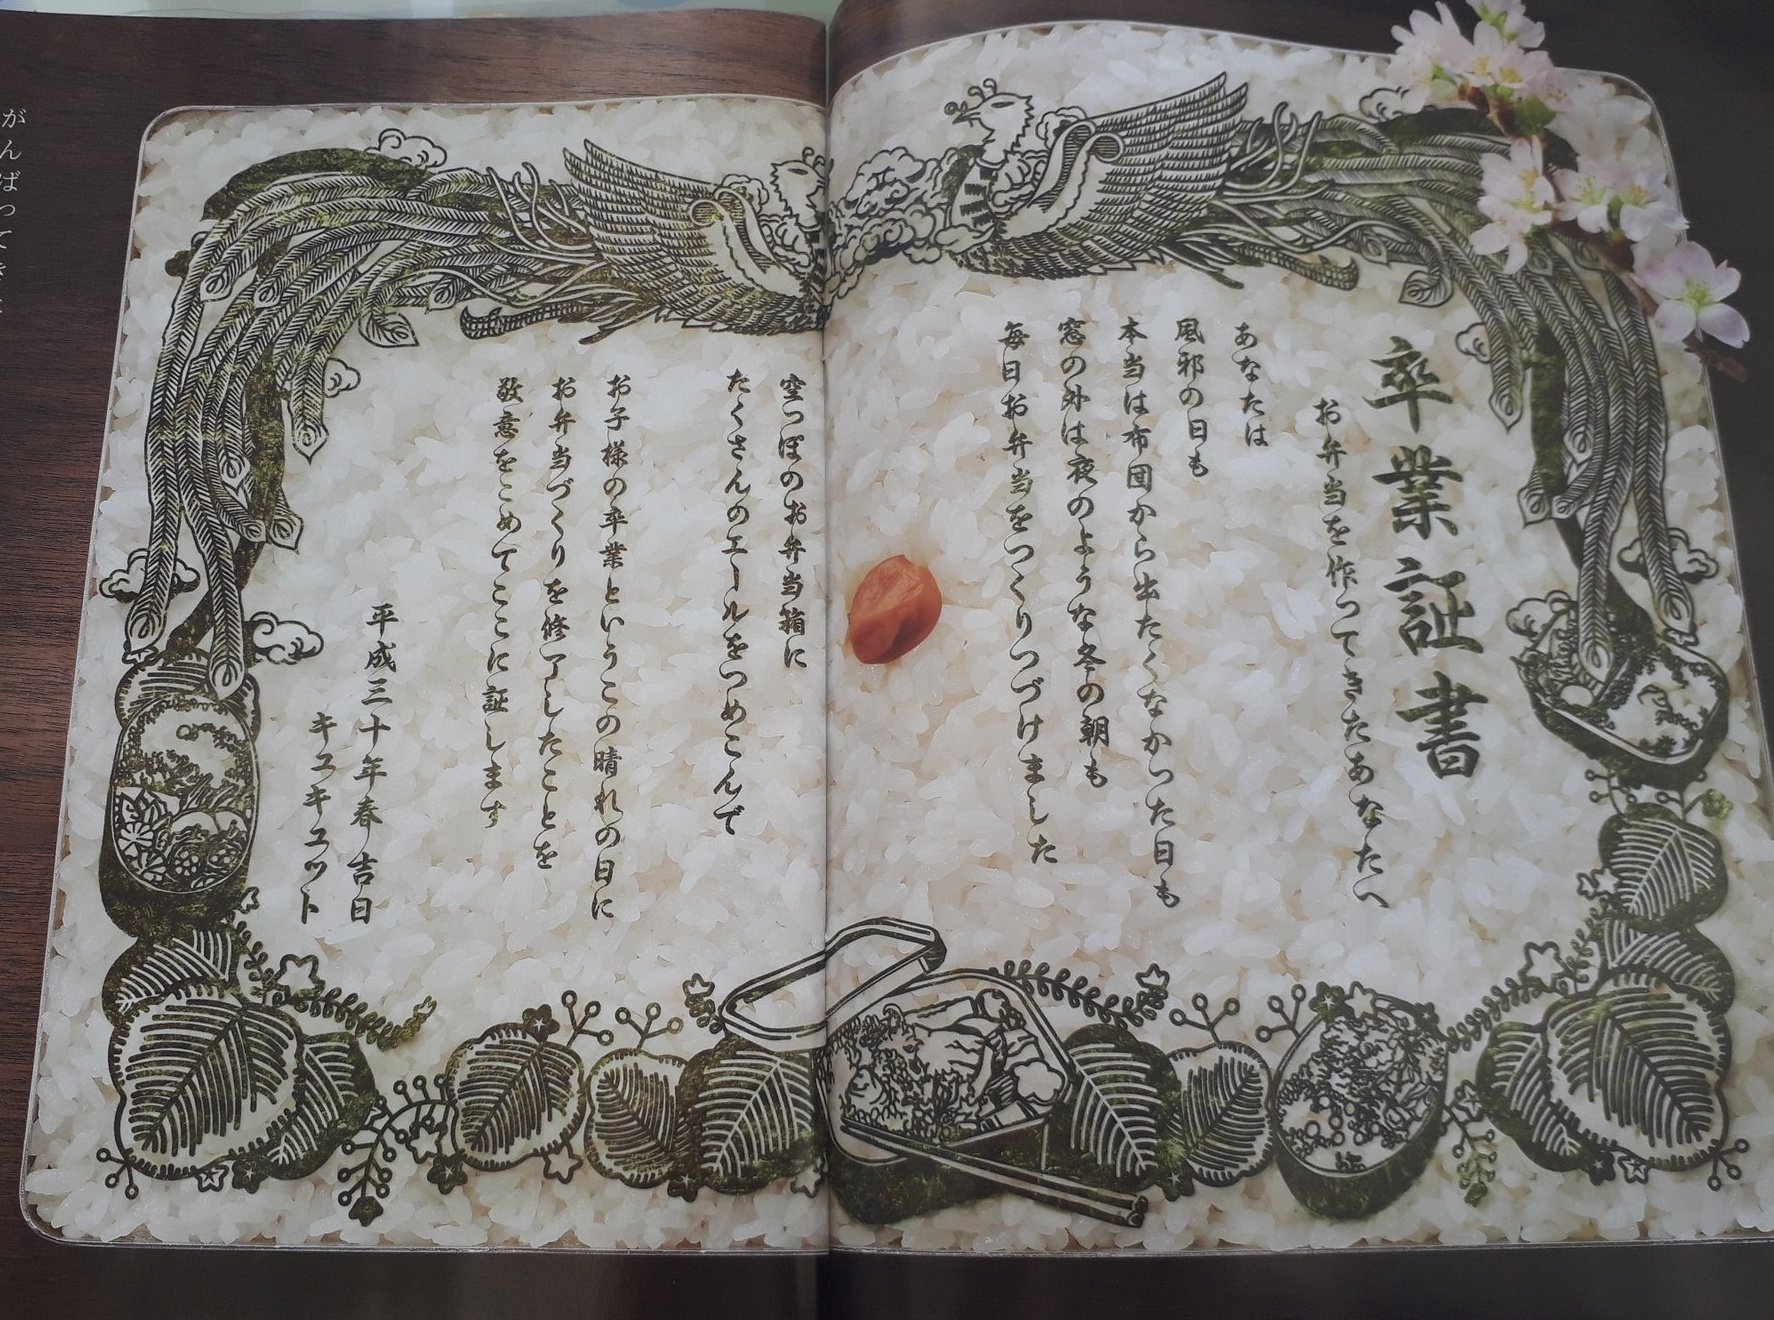 卒業証書
お弁当を作ってきたあなたへ
あなたは
風邪の日も
本当は布団から出たくなかった日も
窓の外は夜のような冬の朝も
毎日お弁当をつくりつづけました
空っぽのお弁当箱に
たくさんのエールをつめこんで
お子様の卒業というこの晴れの日に
お弁当づくりを修了したことを
敬意をこめてここに証します
平成三十年春吉日
キュキュット
がんばってき